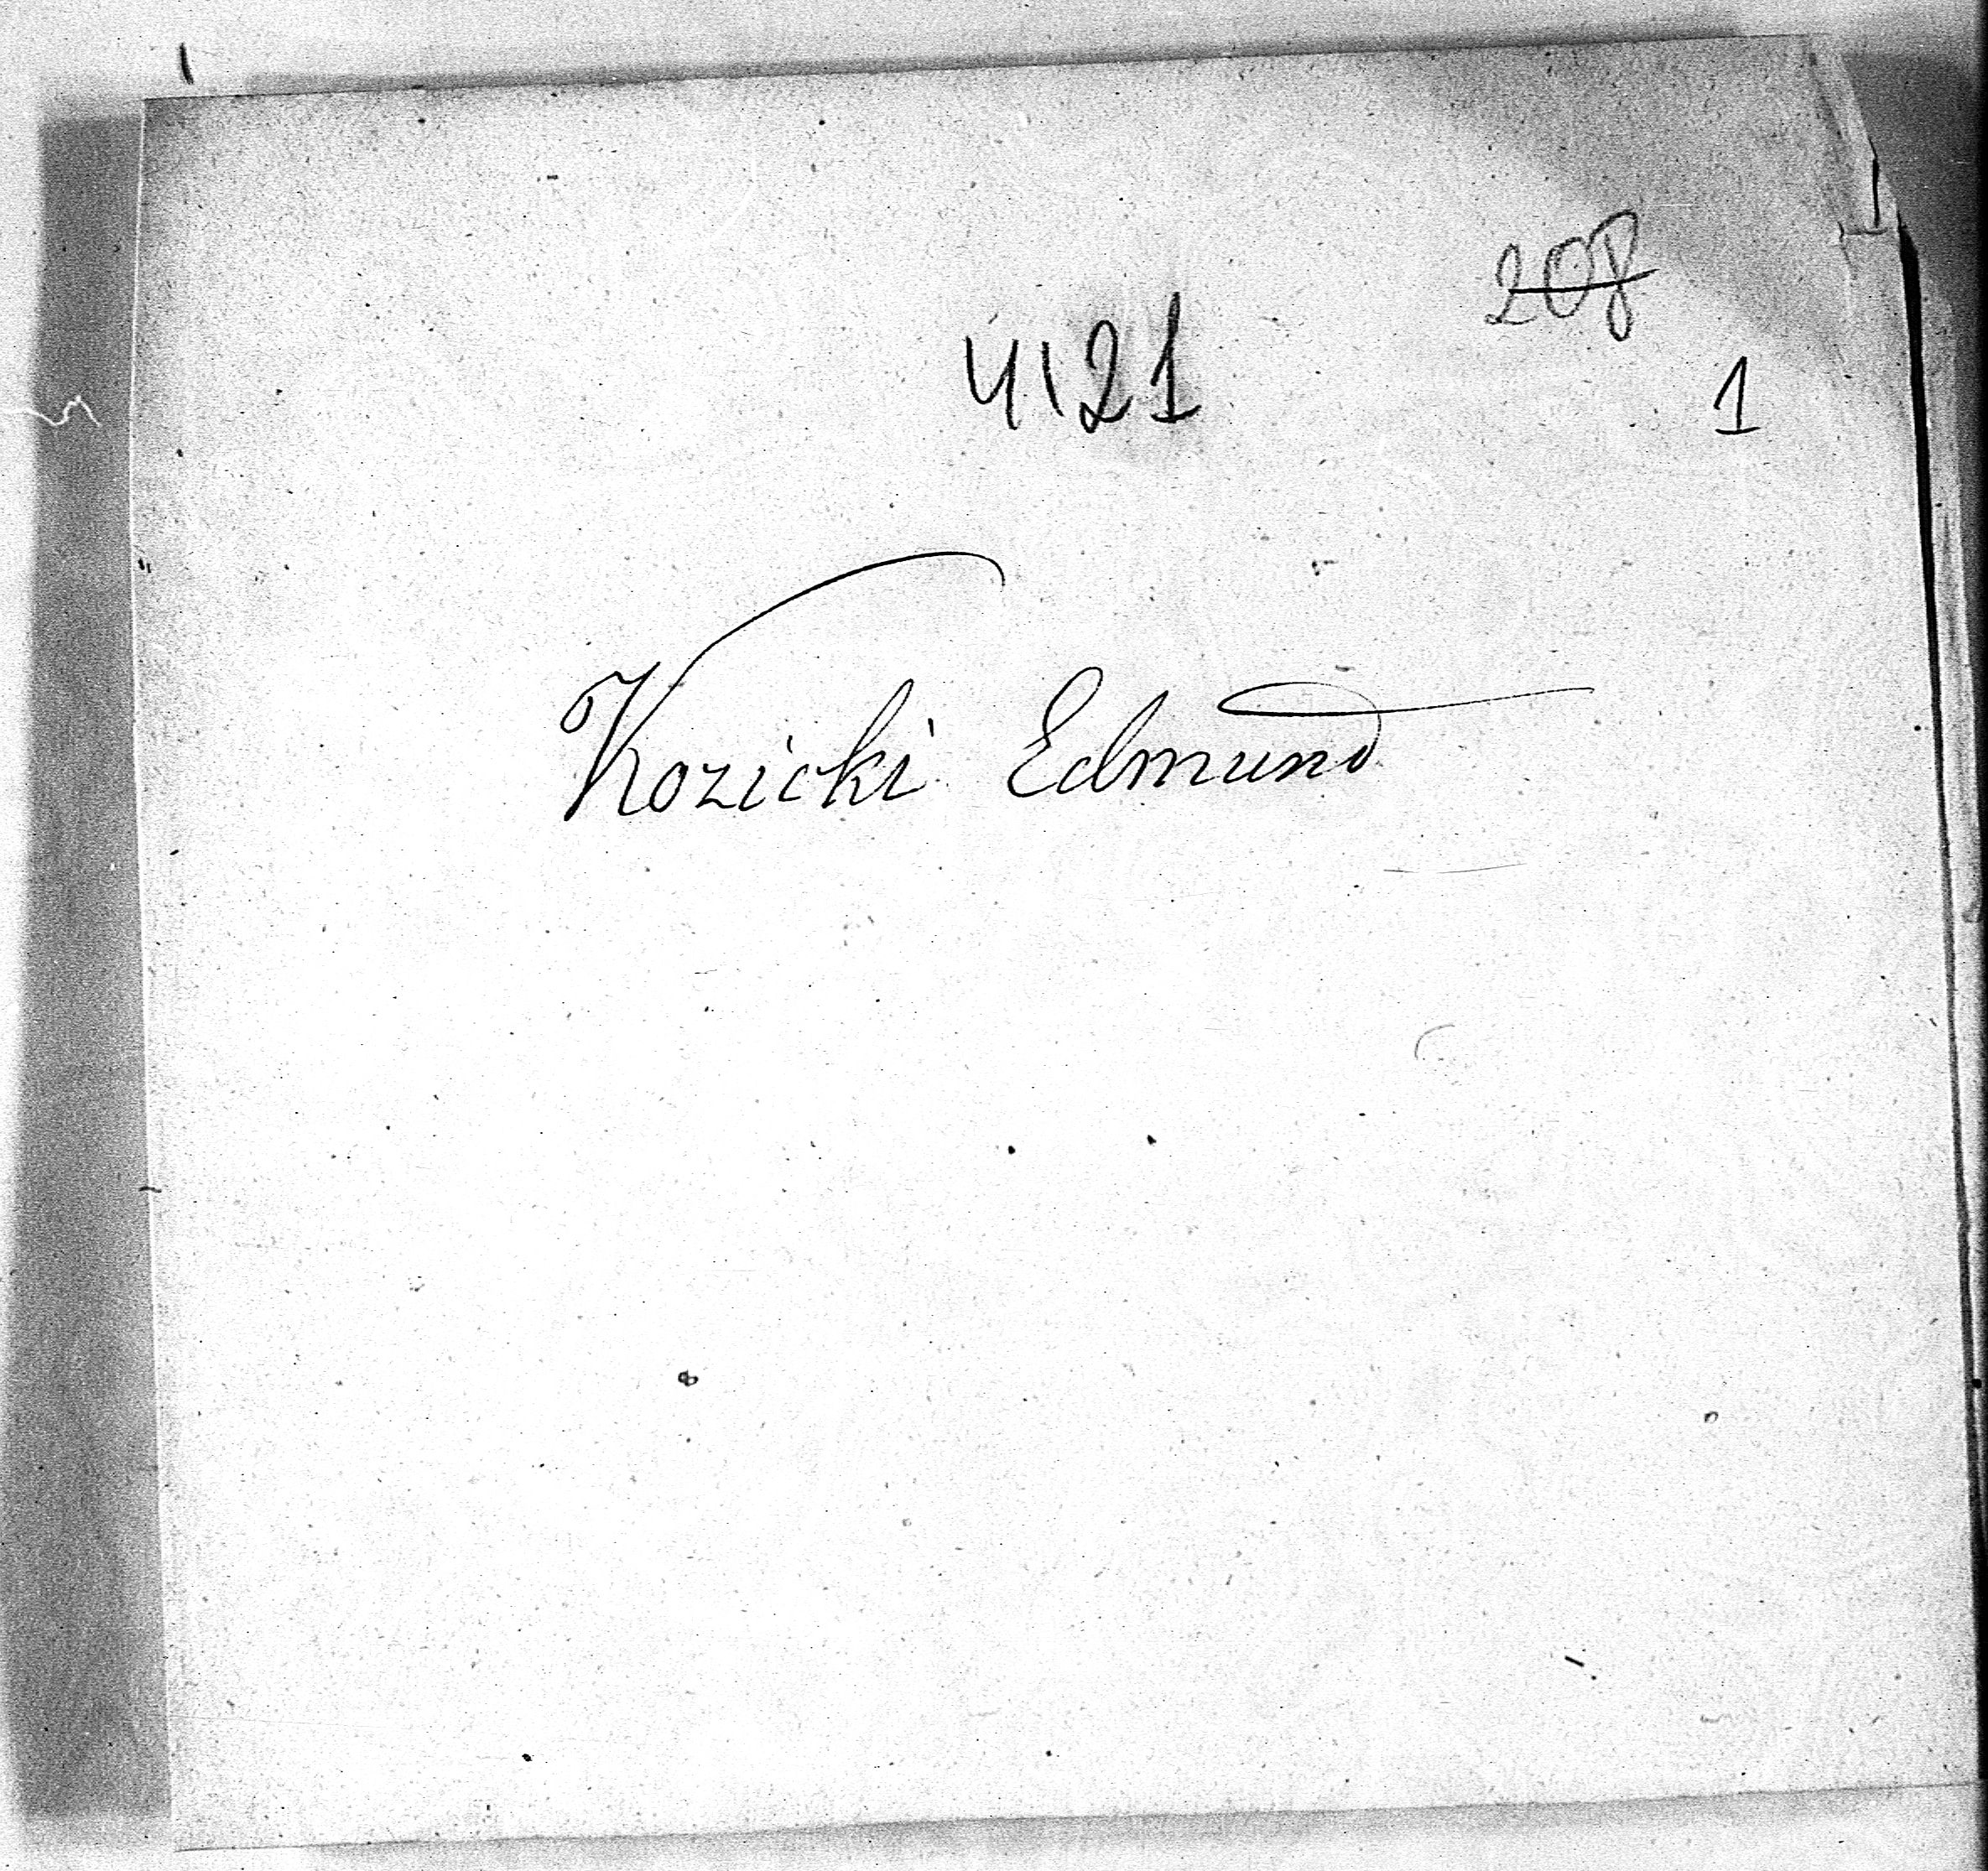 208
4121
1
Kozicki Edmund